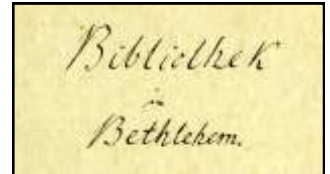 Bibliothek
in
Bethlehem.